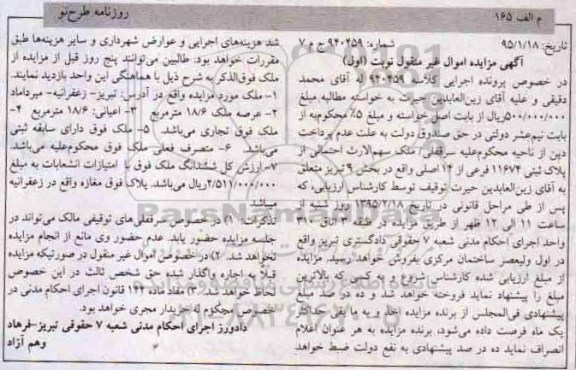 م الف ۱۶۵
روزنامه طرح نو
تاریخ: ۹۵/۱/۱۸ شماره: ۹۴۰۴۵۹ ج م ۷
آگهی مزایده اموال غیر منقول نوبت (اول)
در خصوص پرونده اجرایی کلاسه ۹۴۰۴۵۹ له آقای محمد
دقیقی و علیه آقای زین‌العابدین حیرت به خواسته مطالبه مبلغ
۵۰۰/۰۰۰/۰۰۰ریال از بابت اصل خواسته و مبلغ ۵٪ محکوم‌به از
بابت نیم‌عشر دولتی در حق صندوق دولت به علت عدم پرداخت
دین از ناحیه محکوم‌علیه سرقفلی/ ملک سهم‌الارث احتمالی از
پلاک ثبتی ۱۱۶۷۴ فرعی از ۱۴ اصلی واقع در بخش ۹ تبریز متعلق
به آقای زین‌العابدین حیرت توقیف توسط کارشناس ارزیابی، که
پس از طی مراحل قانونی در تاریخ ۱۳۹۵/۲/۱۸ روز شنبه از
ساعت ۱۱ الی ۱۲ ظهر از طریق مزایده در طبقه اتاق ۳۰۰
واحد اجرای احکام مدنی شعبه ۷ حقوقی دادگستری تبریز واقع
در اول ولیعصر ساختمان مرکزی بفروش خواهد رسید. مزایده
از مبلغ ارزیابی شده کارشناس شروع و به کسی که بالاترین
مبلغ را پیشنهاد نماید فروخته خواهد شد و ده در صد مبلغ
پیشنهادی فی‌المجلس از برنده مزایده اخذ و به مابقی حداکثر
یک ماه فرصت داده می‌شود، برنده مزایده به هر عنوان اعلام
انصراف نماید ده در صد پیشنهادی به نفع دولت ضبط خواهد
شد هزینه‌های اجرایی و عوارض شهرداری و سایر هزینه‌ها طبق
مقررات خواهد بود. طالبین می‌توانند پنج روز قبل از مزایده از
ملک فوق‌الذکر به شرح ذیل با هماهنگی این واحد بازدید نمایند.
۱- ملک مورد مزایده واقع در آدرس: تبریز- زعفرانیه- میرداماد
۲- عرصه ملک ۱۸/۶ مترمربع ۳- اعیانی: ۱۸/۶ مترمربع ۴-
ملک فوق تجاری می‌باشد ۵- ملک فوق دارای سابقه ثبتی
می‌باشد ۶- متصرف فعلی ملک فوق محکوم‌علیه می‌باشد.
۷- ارزش کل ششدانگ ملک فوق با امتیازات انشعابات به مبلغ
۲/۵۱۱/۰۰۰/۰۰۰ریال می‌باشد. پلاک فوق مغازه واقع در زعفرانیه
میباشد
تذکرات: ۱) در خصوص سرقفلی‌های توقیفی مالک می‌تواند در
جلسه مزایده حضور یابد عدم حضور وی مانع از انجام مزایده
نخواهد شد. ۲) در خصوص اموال غیر منقول در صورتیکه مزایده
قبلاً به اجاره واگذار شده حق شخص ثالث در این خصوص
لحاظ خواهد شد. ۳) مفاد ماده ۱۴۲ قانون اجرای احکام مدنی در
خصوص محکوم له خریدار مجری خواهد بود.
دادورز اجرای احکام مدنی شعبه ۷ حقوقی تبریز-فرهاد
وهم آزاد
ParsNamadData